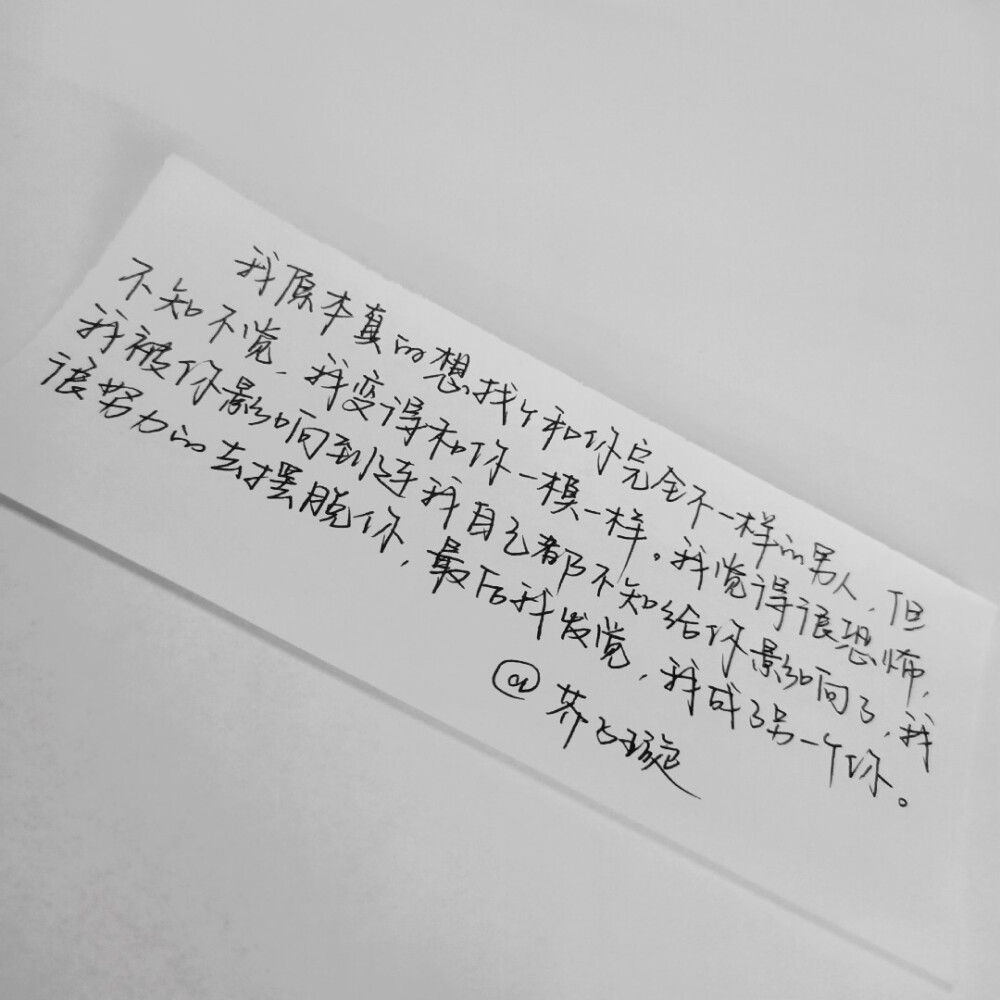 我原本真的想找个和你完全不一样的男人,但
不知不觉,我变得和你一模一样。我觉得很恐怖,
我被你影响到连我自己都不知给你影响了,我
很努力的去摆脱你,最后我发觉,我成了另一个你。
@芥飞璇